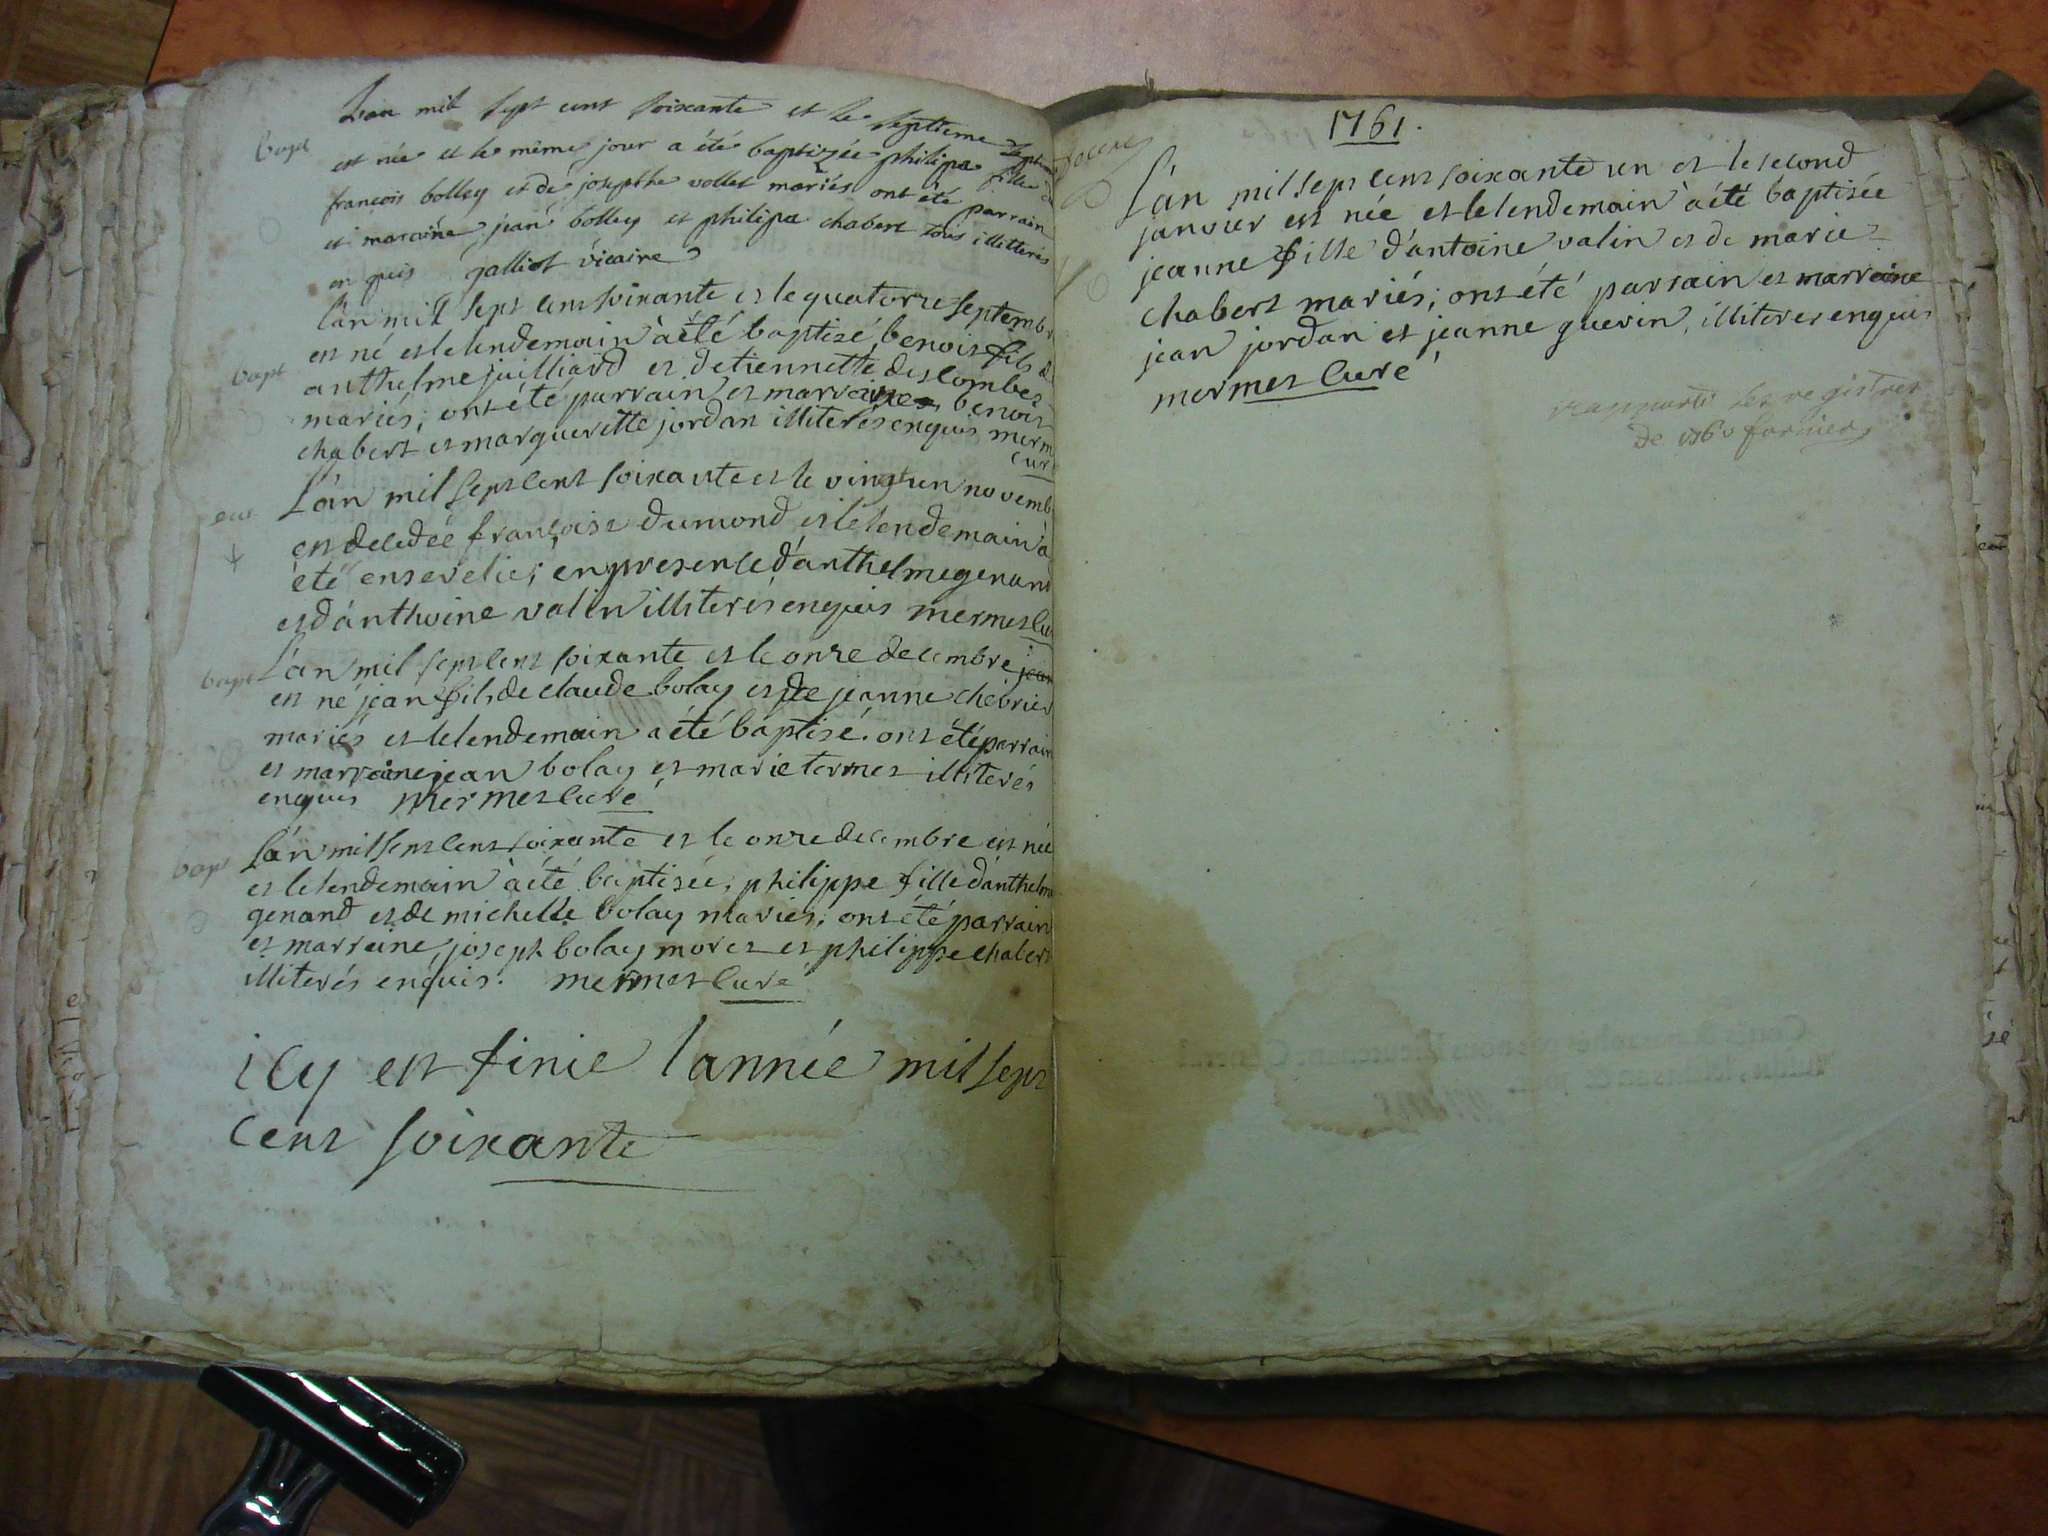 bapt
L'an mil sept cent soixante et le septieme septem
est née et le même jour a été baptizée philipa fille
francois bolley et de josepthe vollet mariés ont été parrain
et maraine jean bolley et philipa chabert tous illitterés
enquis galliot vicaire
bapt
L'an mill sept cent soixante et le quatorze septembr
est né et le lendemain à été baptisé, benoist fils d
anthelme juilliard et detiennette descombes
mariés; ont été parrain et marraine benoist
chabert et margueritte jordan illiterés enquis merm
cur
L'an mil sept cent soixante et le vingt un novemb
est decedée françoise dumond et le lendemain à
été ensevelie; en presence d'anthelme genand
et d'anthoine valin illiterés enquis mermet cu
bapt
L'an mil sept cent soixante et le onze decembre jean
est né jean fils de claude bolay et de jeanne chevrier
mariés et le lendemain a été baptisé. ont été parrain
et marraine jean bolay et marie termet illiterés
enquis mermet curé
bapt
L'an mil sept cent soixante et le onze decembre est née
et le lendemain à été baptisée, philippe fille d'anthelm
genand et de michelle bolay mariés; ont été parrain
et marraine, joseph bolay moret et philippe chabert
illiterés enquis. mermet curé
icy est finie l'année mil sept
cent soixante
1761.
L'an mil sept cent soixante un et le second
janvier est née et le lendemain à été baptisée
jeanne fille d'antoine valin et de marie
chabert mariés; ont été parrain et marraine
jean jordan et jeanne guerin, illiteres enquis
mermet curé
rapporté les registres
de 1760